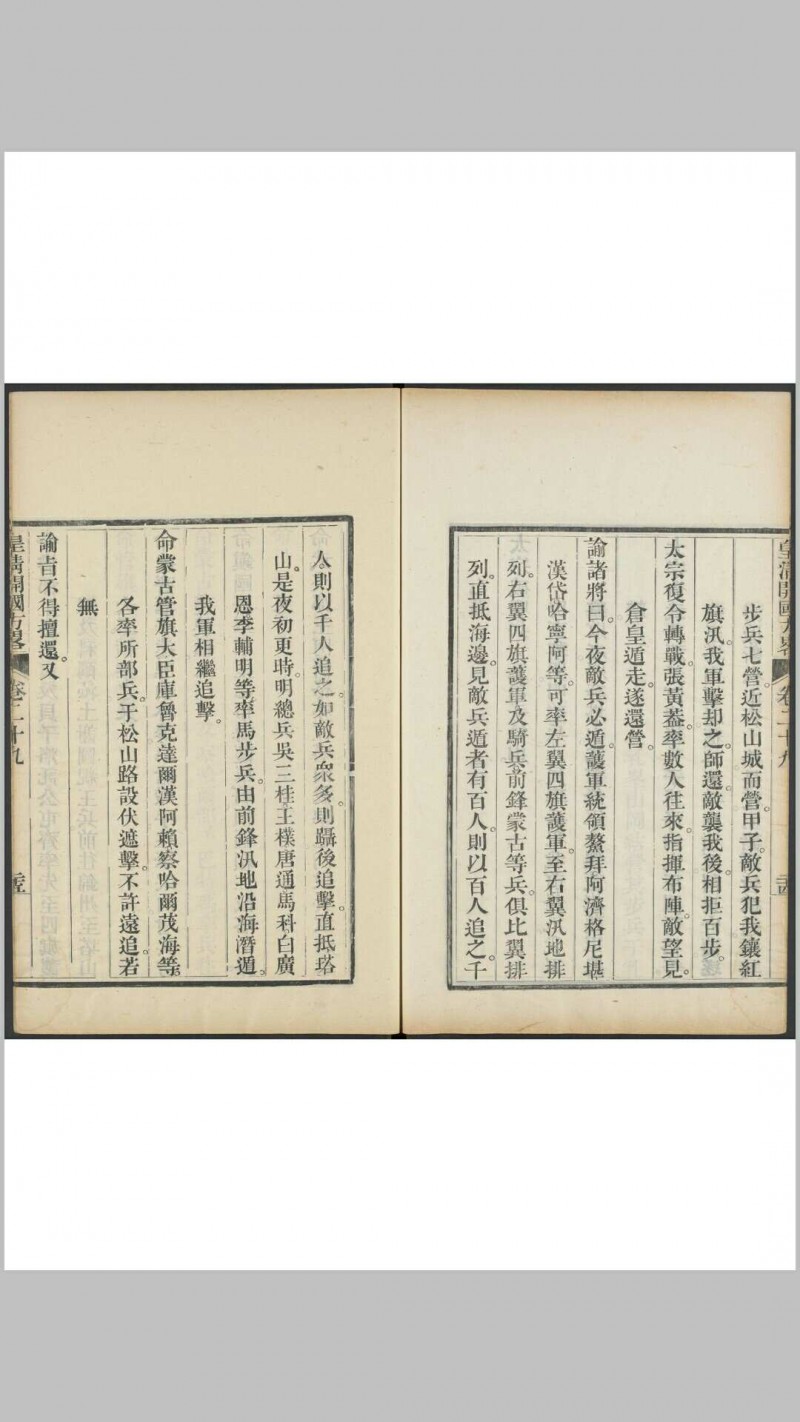 皇清開國方畧 卷二十九
步兵七營。近松山城而營。甲子。敵兵犯我鑲紅
旗汛。我軍擊却之。師還。敵襲我後。相拒百步。
太宗復令轉戰。張黃蓋。率數人往來。指揮布陣。敵望見。
倉皇遁走。遂還營。
諭諸將曰。今夜敵兵必遁。護軍統領鰲拜阿濟格尼堪
漢岱哈寧阿等。可率左翼四旗護軍。至右翼汛地排
列。右翼四旗護軍及騎兵前鋒蒙古等兵。俱比翼排
列。直抵海邊。見敵兵遁者有百人。則以百人追之。千
人則以千人追之。如敵兵衆多。則躡後追擊。直抵塔
山。是夜初更時。明總兵吳三桂王樸唐通馬科白廣
恩李輔明等率馬步兵。由前鋒汛地沿海潛遁。
我軍相繼追擊。
命蒙古管旗大臣庫魯克達爾漢阿賴察哈爾茂海等
各率所部兵。于松山路設伏遮擊。不許遠追。若
無
諭旨不得擅還。又
皇清開國方畧 卷二十九